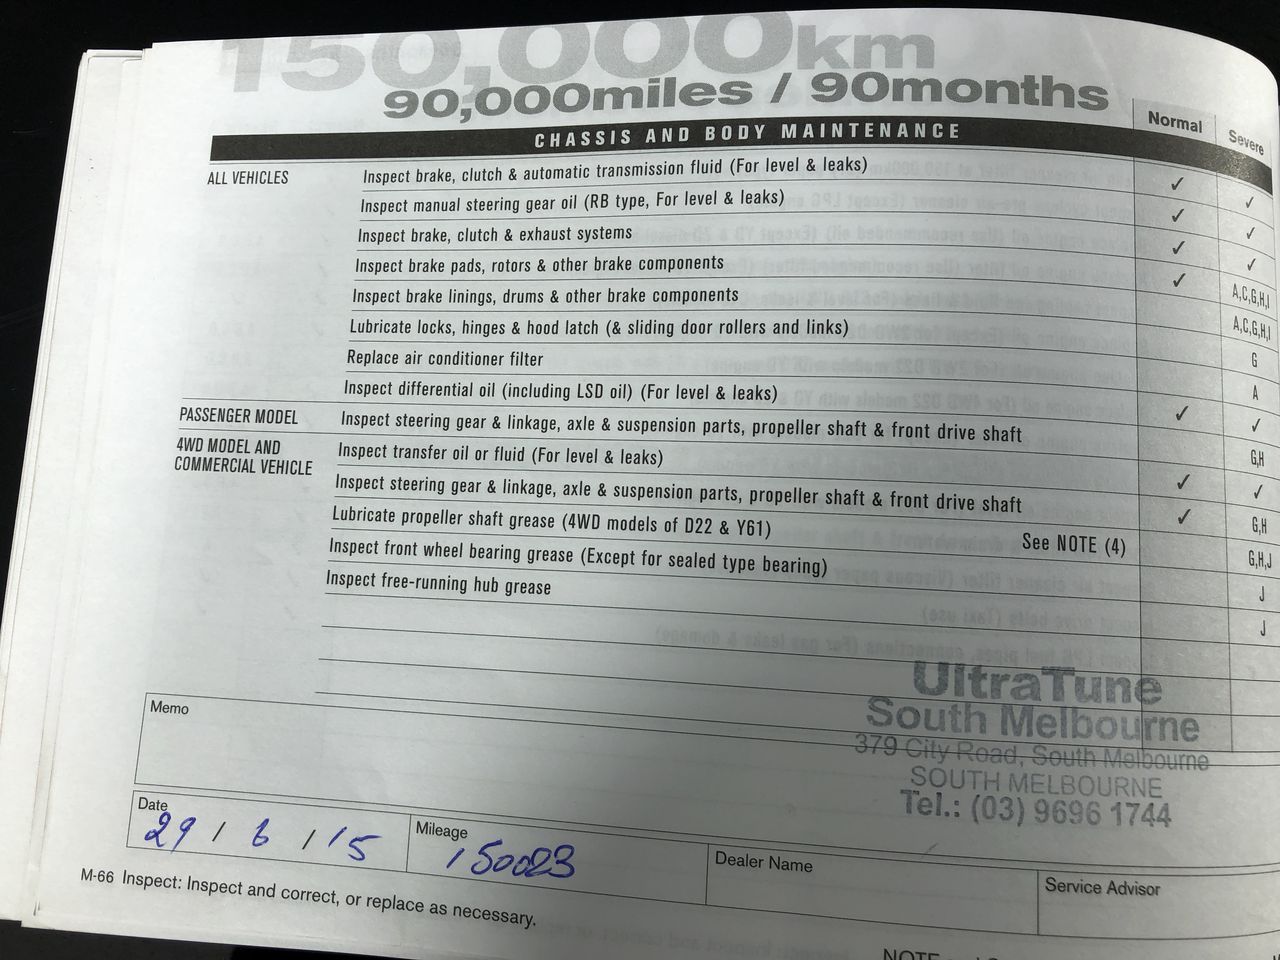 150,000km
90,000miles / 90months
Normal Severe
CHASSIS AND BODY MAINTENANCE
ALL VEHICLES Inspect brake, clutch & automatic transmission fluid (For level & leaks) ✓ ✓
Inspect manual steering gear oil (RB type, For level & leaks) ✓ ✓
Inspect brake, clutch & exhaust systems ✓ ✓
Inspect brake pads, rotors & other brake components ✓ A,C,G,H,I
Inspect brake linings, drums & other brake components A,C,G,H,I
Lubricate locks, hinges & hood latch (& sliding door rollers and links) G
Replace air conditioner filter A
Inspect differential oil (including LSD oil) (For level & leaks) ✓ ✓
PASSENGER MODEL Inspect steering gear & linkage, axle & suspension parts, propeller shaft & front drive shaft G,H
4WD MODEL AND
COMMERCIAL VEHICLE
Inspect transfer oil or fluid (For level & leaks) ✓ ✓
Inspect steering gear & linkage, axle & suspension parts, propeller shaft & front drive shaft ✓ G,H
Lubricate propeller shaft grease (4WD models of D22 & Y61) See NOTE (4) G,H,J
Inspect front wheel bearing grease (Except for sealed type bearing) J
Inspect free-running hub grease J
UltraTune
South Melbourne
379 City Road, South Melbourne
SOUTH MELBOURNE
Tel.: (03) 9696 1744
Memo
Date
29 / 6 / 15
Mileage
150023
Dealer Name
Service Advisor
M-66 Inspect: Inspect and correct, or replace as necessary.